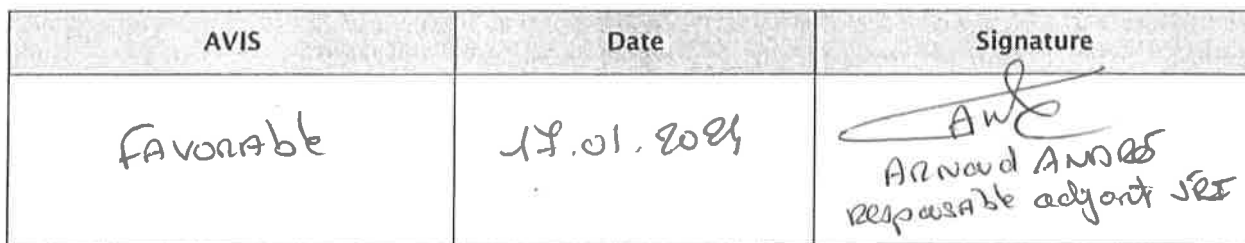 AVIS Date Signature
Favorable 17.01.2024
Arnaud ANDRÉ
Responsable adjoint SRI